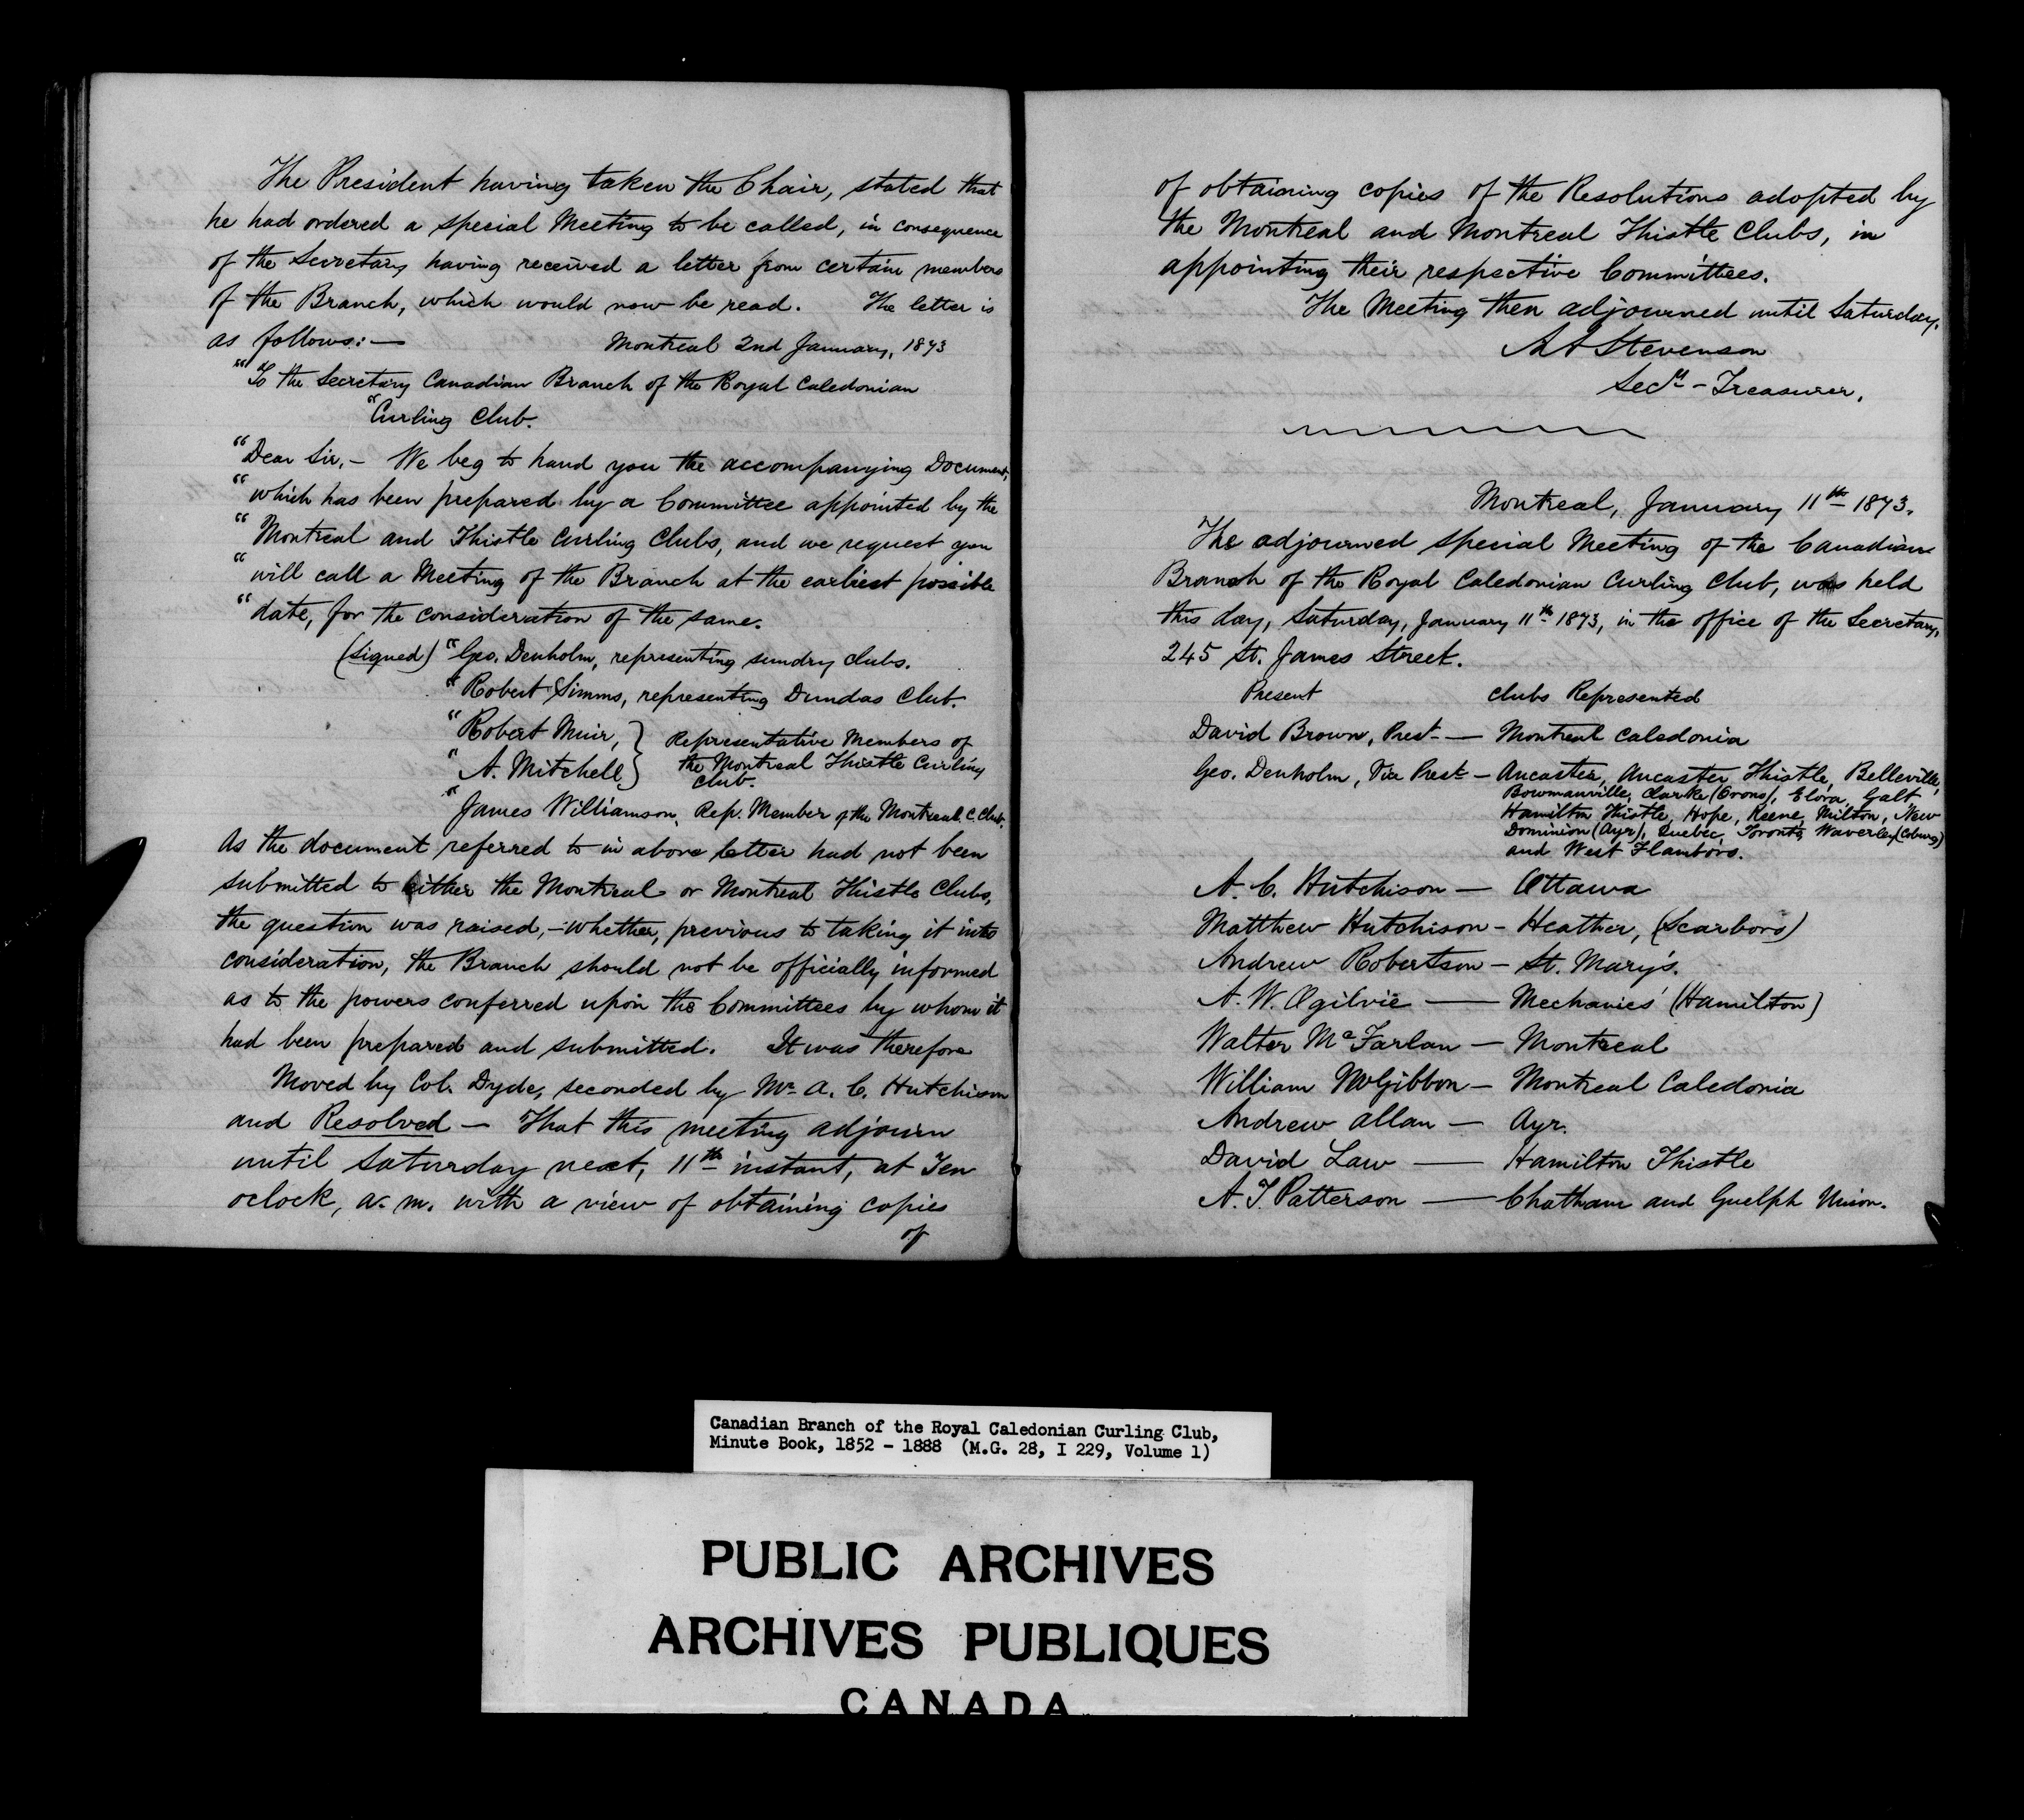 The President having taken the Chair, stated that
he had ordered a special Meeting to be called, in consequence
of the Secretary having received a letter from certain members
of the Branch, which would now be read. The letter is
as follows:— Montreal 2nd January, 1873
"To the Secretary Canadian Branch of the Royal Caledonian
"Curling Club.
"Dear Sir,— We beg to hand you the accompanying Document,
"which has been prepared by a Committee appointed by the
"Montreal and Thistle Curling Clubs, and we request you
"will call a Meeting of the Branch at the earliest possible
"date, for the consideration of the same.
(Signed) "Geo. Denholm, representing sundry clubs.
"Robert Simms, representing Dundas Club.
"Robert Muir, } Representative Members of
"A. Mitchell } the Montreal Thistle Curling
Club.
"James Williamson, Rep. Member of the Montreal C. Club.
As the document referred to in above letter had not been
submitted to either the Montreal or Montreal Thistle Clubs,
the question was raised,—whether, previous to taking it into
consideration, the Branch should not be officially informed
as to the powers conferred upon the Committees by whom it
had been prepared and submitted. It was therefore
Moved by Col. Dyde, seconded by Mr. A. C. Hutchison
and Resolved — That this meeting adjourn
until Saturday next, 11th instant, at Ten
oclock, a. m. with a view of obtaining copies
of
of obtaining copies of the Resolutions adopted by
the Montreal and Montreal Thistle Clubs, in
appointing their respective Committees.
The Meeting then adjourned until Saturday.
Stevenson
Secy - Treasurer.
Montreal, January 11th 1873.
The adjourned special Meeting of the Canadian
Branch of the Royal Caledonian Curling Club, was held
this day, Saturday, January 11th 1873, in the office of the Secretary,
245 St. James Street.
Present Clubs Represented
David Brown, Prest. — Montreal Caledonia
Geo. Denholm, Vice Prest — Ancaster, Ancaster Thistle, Belleville,
Bowmanville, Clarke (Orono), Elora, Galt
Hamilton Thistle, Hope, Keene, Milton, New
Dominion (Ayr), Quebec, Toronto, Waverley (Coburg)
and West Flamboro.
A. C. Hutchison — Ottawa
Matthew Hutchison - Heather, (Scarboro)
Andrew Robertson — St. Mary's.
A. W. Ogilvie — Mechanics' (Hamilton)
Walter McFarlan — Montreal
William McGibbon — Montreal Caledonia
Andrew Allan — Ayr.
David Law — Hamilton Thistle
A. T. Patterson — Chatham and Guelph Union.
Canadian Branch of the Royal Caledonian Curling Club,
Minute Book, 1852 - 1888 (M.G. 28, I 229, Volume 1)
PUBLIC ARCHIVES
ARCHIVES PUBLIQUES
CANADA